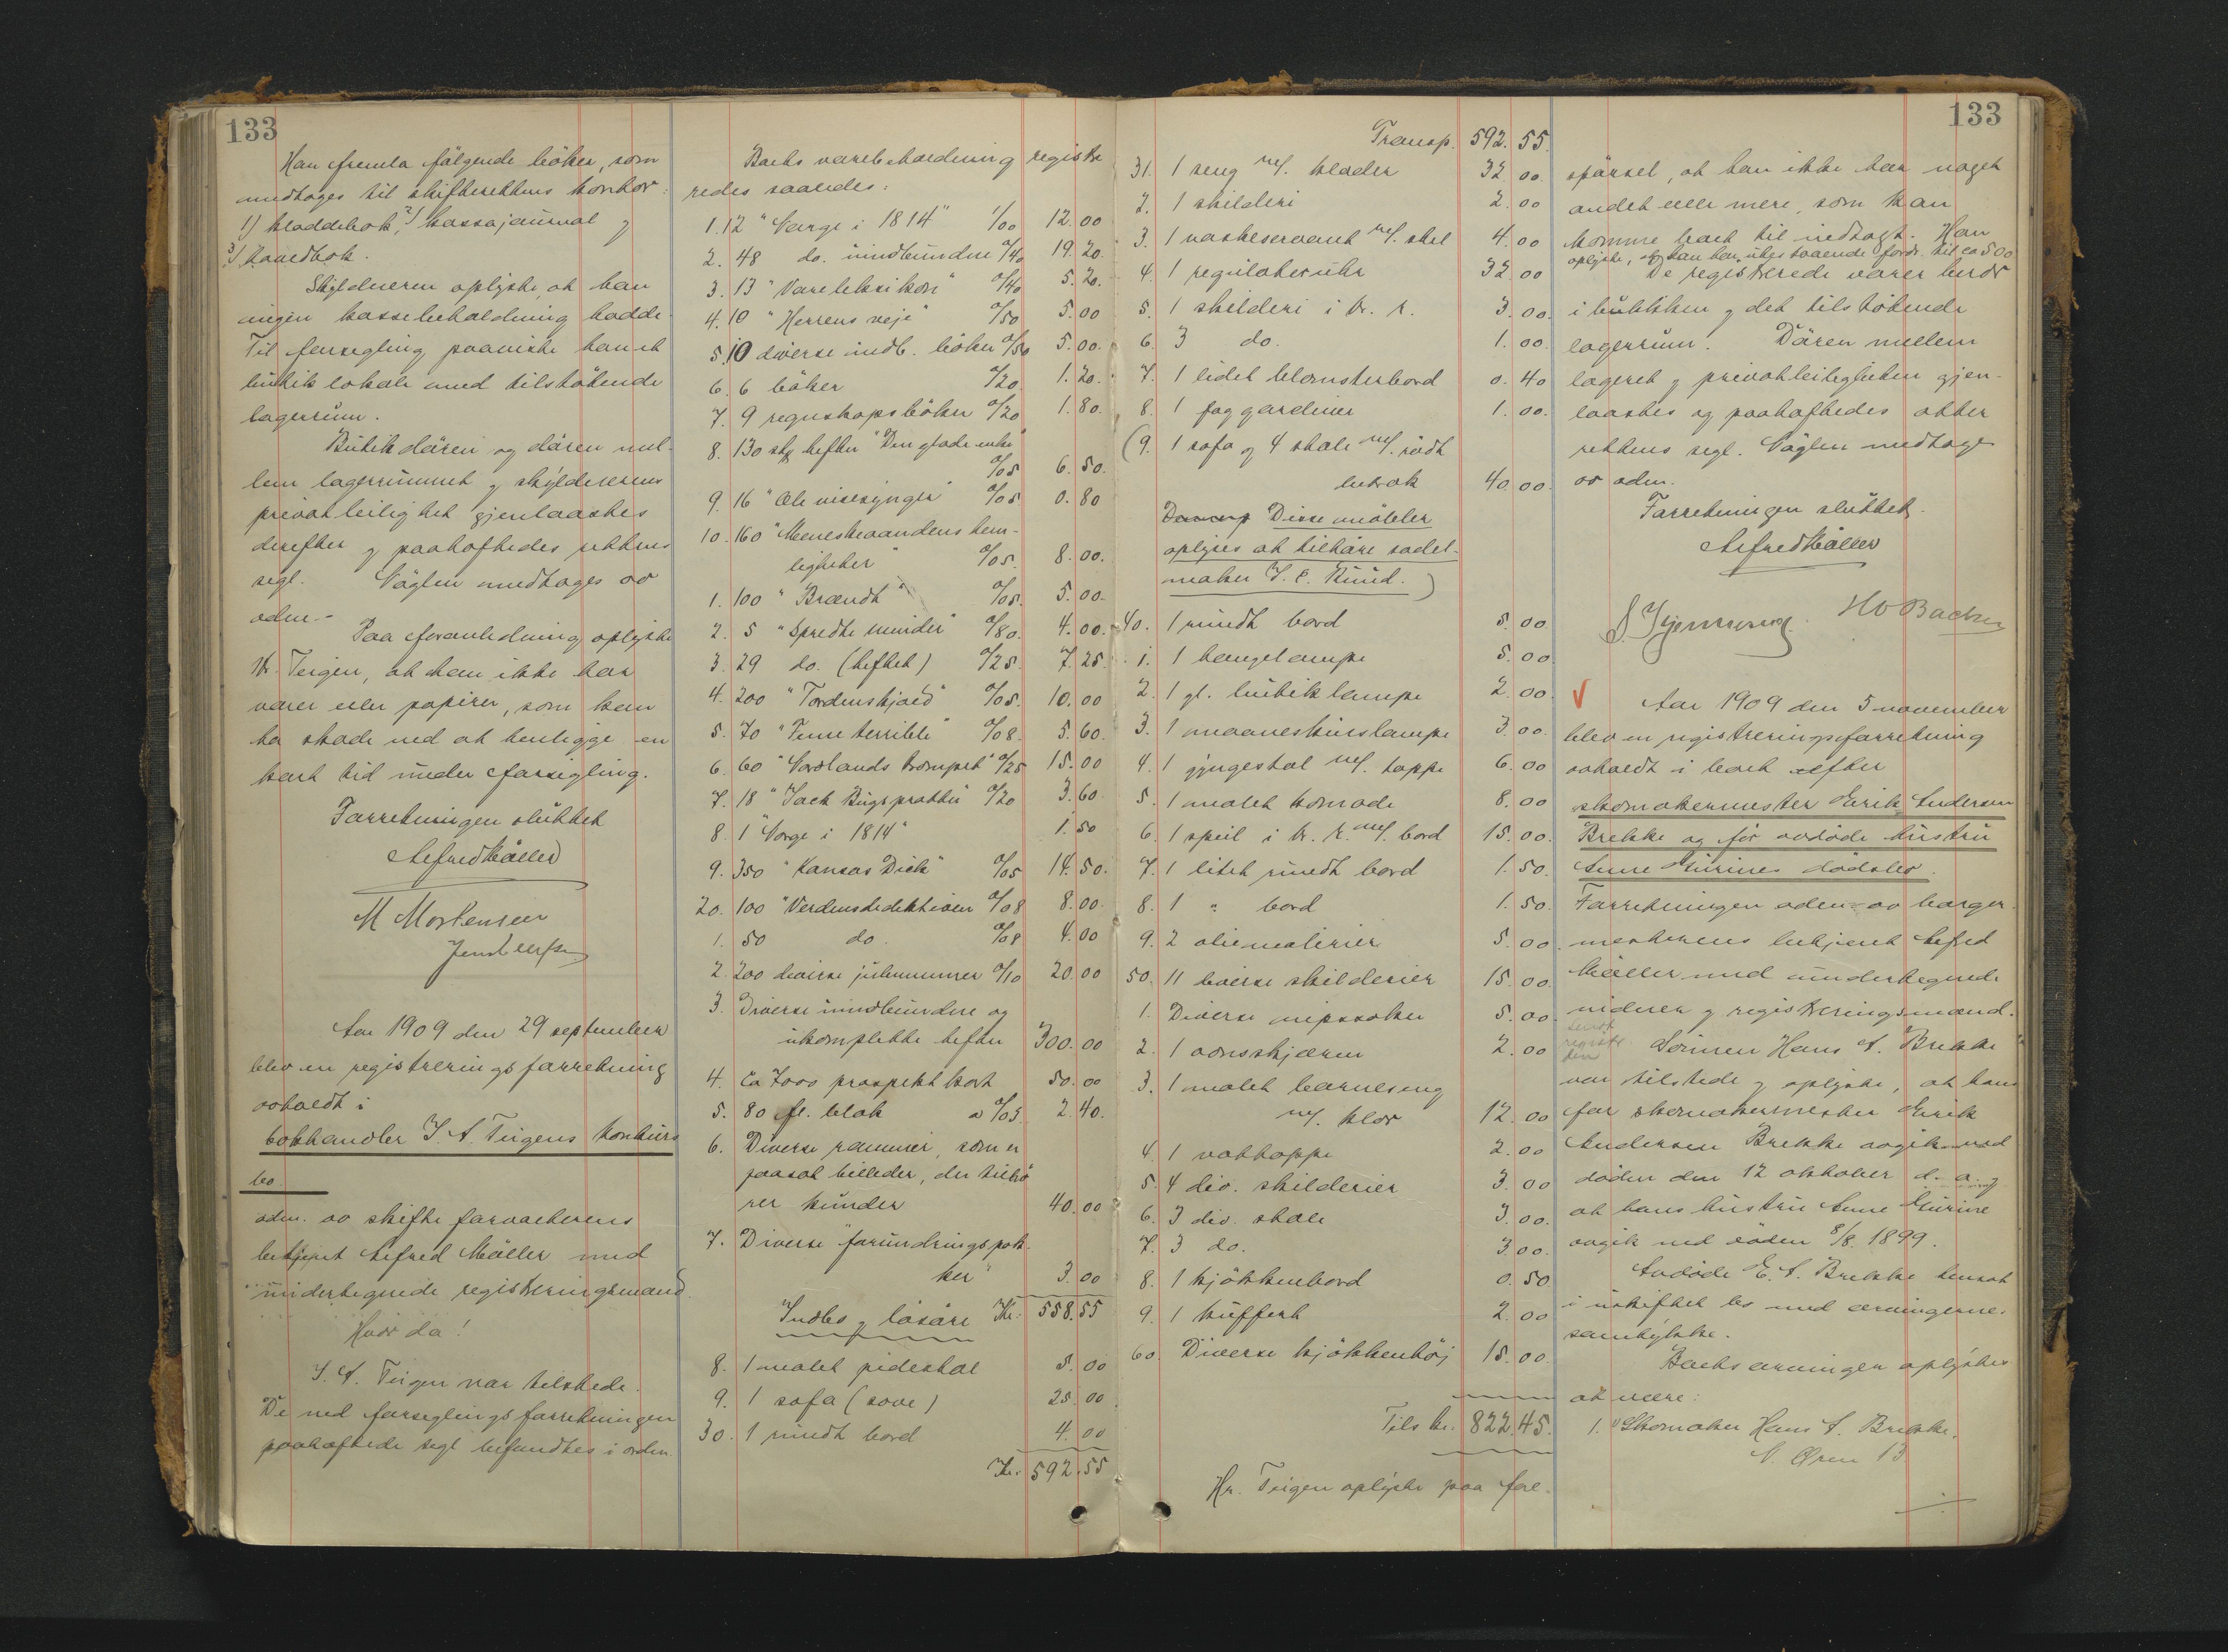 133
Han fremla følgende böker, som
medtoges til skifterettens kontor:
1) kladdebok, 2) kassajournal og
3) hovedbok.
Skyldneren oplyste, at han
ingen kassebeholdning hadde.
Til forsegling paaviste han et
butiklokale med tilstötende
lagerrum.
Butikdören og dören mel-
lem lagerrummet og skyldnerens
privatleilighet gjenlaastes
derefter og paaheftedes rettens
segl. Nöglen medtoges av
adm.
Paa foranledning oplyste
Hr. Teigen, at han ikke har
varer eller papirer, som kan
ta skade ved at henligge en
kort tid under forsegling.
Forretningen sluttet
Alfred Möller
M Mortensen
Aar 1909 den 29 september
blev en registreringsforretning
avholdt i
bokhandler J. A. Teigens konkurs
bo
adm. av skifteforvalterens
betjent Alfred Möller med
undertegnede registreringsmænd
Hvor da!
J. A. Teigen var tilstede.
De ved forseglingsforretningen
paaheftede segl befandtes i orden.
Boets varebeholdning registre
redes saaledes:
1. 12 "Norge i 1814" 1/00 12.00
2. 48 do. uindbundne 0/40 19.20
3. 13 "Vareleksikon" 0/40 5.20
4. 10 "Herrens veje" 0/50 5.00
5. 10 diverse indb. böker 0/50 5.00
6. 6 böker 0/20 1.20
7. 9 regnskapsböker 0/20 1.80
8. 130 stk hefter "Den glade enke"
0/05 6.50
9. 16 "Ole visesynger" 0/05 0.80
10. 160 "Menneskeaandens hem-
ligheter" 0/05 8.00
1. 100 "Brændt" 0/05 5.00
2. 5 "Spredte minder" 0/80 4.00
3. 29 do. (heftet) 0/25 7.25
4. 200 "Tordenskjold" 0/05 10.00
5. 70 "Femme terrible" 0/08 5.60
6. 60 "Nordlands trompet" 0/25 15.00
7. 18 "Jack Bugspratter" 0/20 3.60
8. 1 "Norge i 1814" 1.50
9. 350 "Kansas Dick" 0/05 14.50
20. 100 "Verdensdetektiven 0/08 8.00
1. 50 do. 0/08 4.00
2. 200 diverse julenummer 0/10 20.00
3. Diverse uindbundne og
ukomplette hefter 300.00
4. Ca 7000 prospektkort 50.00
5. 80 fl. blæk a 0/03 2.40
6. Diverse rammer, som er
paasat billeder, der tilhö
rer kunder 40.00
7. Diverse "forundringspak-
ker" 3.00
Indbo og lösöre Kr. 558.55
8. 1 malet pidestal 5.00
9. 1 sofa (sove) 25.00
30. 1 rundt bord 4.00
Kr. 592.55
133
Transp. 592.55
31. 1 seng m/. klæder 32.00
2. 1 skilderi 2.00
3. 1 vaskeservant m/. stel 4.00
4. 1 regulatoruhr 32.00
5. 1 skilderi i br. r. 3.00
6. 3 do. 1.00
7. 1 lidet blomsterbord 0.40
8. 1 fag gardiner 1.00
(9. 1 sofa og 4 stole m/. rödt
betræk 40.00
Disse möbler
oplyses at tilhöre sadel-
maker J. E. Ruud.)
40. 1 rundt bord 5.00
1. 1 hængelampe 5.00
2. 1 gl. butiklampe 2.00
3. 1 maaneskinslampe 3.00
4. 1 gyngestol m/. teppe 6.00
5. 1 malet komode 8.00
6. 1 speil i br. r. m/. bord 15.00
7. 1 litet rundt bord 1.50
8. 1 " bord 1.50
9. 2 oliemalerier 5.00
50. 11 diverse skilderier 15.00
1. Diverse nipssaker 5.00
2. 1 ovnsskjærm 2.00
3. 1 malet barneseng
m/. klær 12.00
4. 1 vatteppe 2.00
5. 4 div. skilderier 3.00
6. 3 div. stole 3.00
7. 3 do. 3.00
8. 1 kjökkenbord 0.50
9. 1 kuffert 2.00
60. Diverse kjökkentöj 15.00
Tils kr. 822.45
Hr. Teigen oplyste paa fore-
spörsel, at han ikke har noget
andet eller mere, som kan
komme boet til indtægt. Han
oplyste, at han har utestaaende fordr. til ca 500
De registrerede varer beror
i butikken og det tilstötende
lagerrum. Dören mellem
lageret og privatleiligheten gjen-
laastes og paaheftedes atter
rettens segl. Nöglen medtoges
av adm.
Forretningen sluttet.
Alfred Möller
Aar 1909 den 5 november
blev en registreringsforretning
avholdt i boet efter
skomakermester Eirik Andersen
Brekke og för avdöde hustru
Anne Gurines dödsbo.
Forretningen adm. av borger-
mesterens betjent Alfred
Möller med undertegnede
vidner og registreringsmænd.
Sönnen Hans A. Brekke
var tilstede og oplyste, at hans
far skomakermester Eirik
Andersen Brekke avgik ved
döden den 12 oktober d. a. og
at hans hustru Anne Gurine
avgik ved döden 8/8 1899.
Avdöde E. A. Brekke hensat
i uskiftet bo med arvingernes
samtykke.
Boets arvinger oplystes
at være:
1. Skomaker Hans A. Brekke,
N. Øren 13